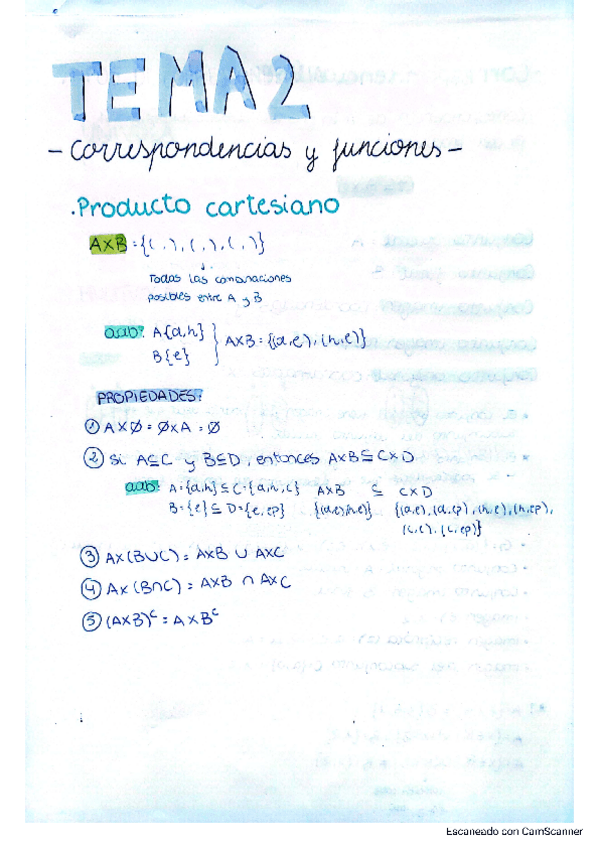 TEMA 2
- Correspondencias y funciones -
.Producto cartesiano
AxB = {( , ), ( , ), ( , )}
↓
Todas las combinaciones
posibles entre A y B
aab: A{a,h} } AXB = {(a,e), (h,e)}
B{e}
PROPIEDADES:
① A X Ø = Ø x A = Ø
② Si A⊆C y B⊆D, entonces AxB ⊆ CxD
aab: A={a,h} ⊆ C={a,h,c} AXB ⊆ CXD
B={e} ⊆ D={e,ep} {(a,e),(h,e)} {(a,e),(a,ep),(h,e),(h,ep),
(c,e),(c,ep)}
③ Ax(BUC) = AxB U AXC
④ Ax(B∩C) = AXB ∩ AXC
⑤ (AXB)ᶜ = A X Bᶜ
Escaneado con CamScanner